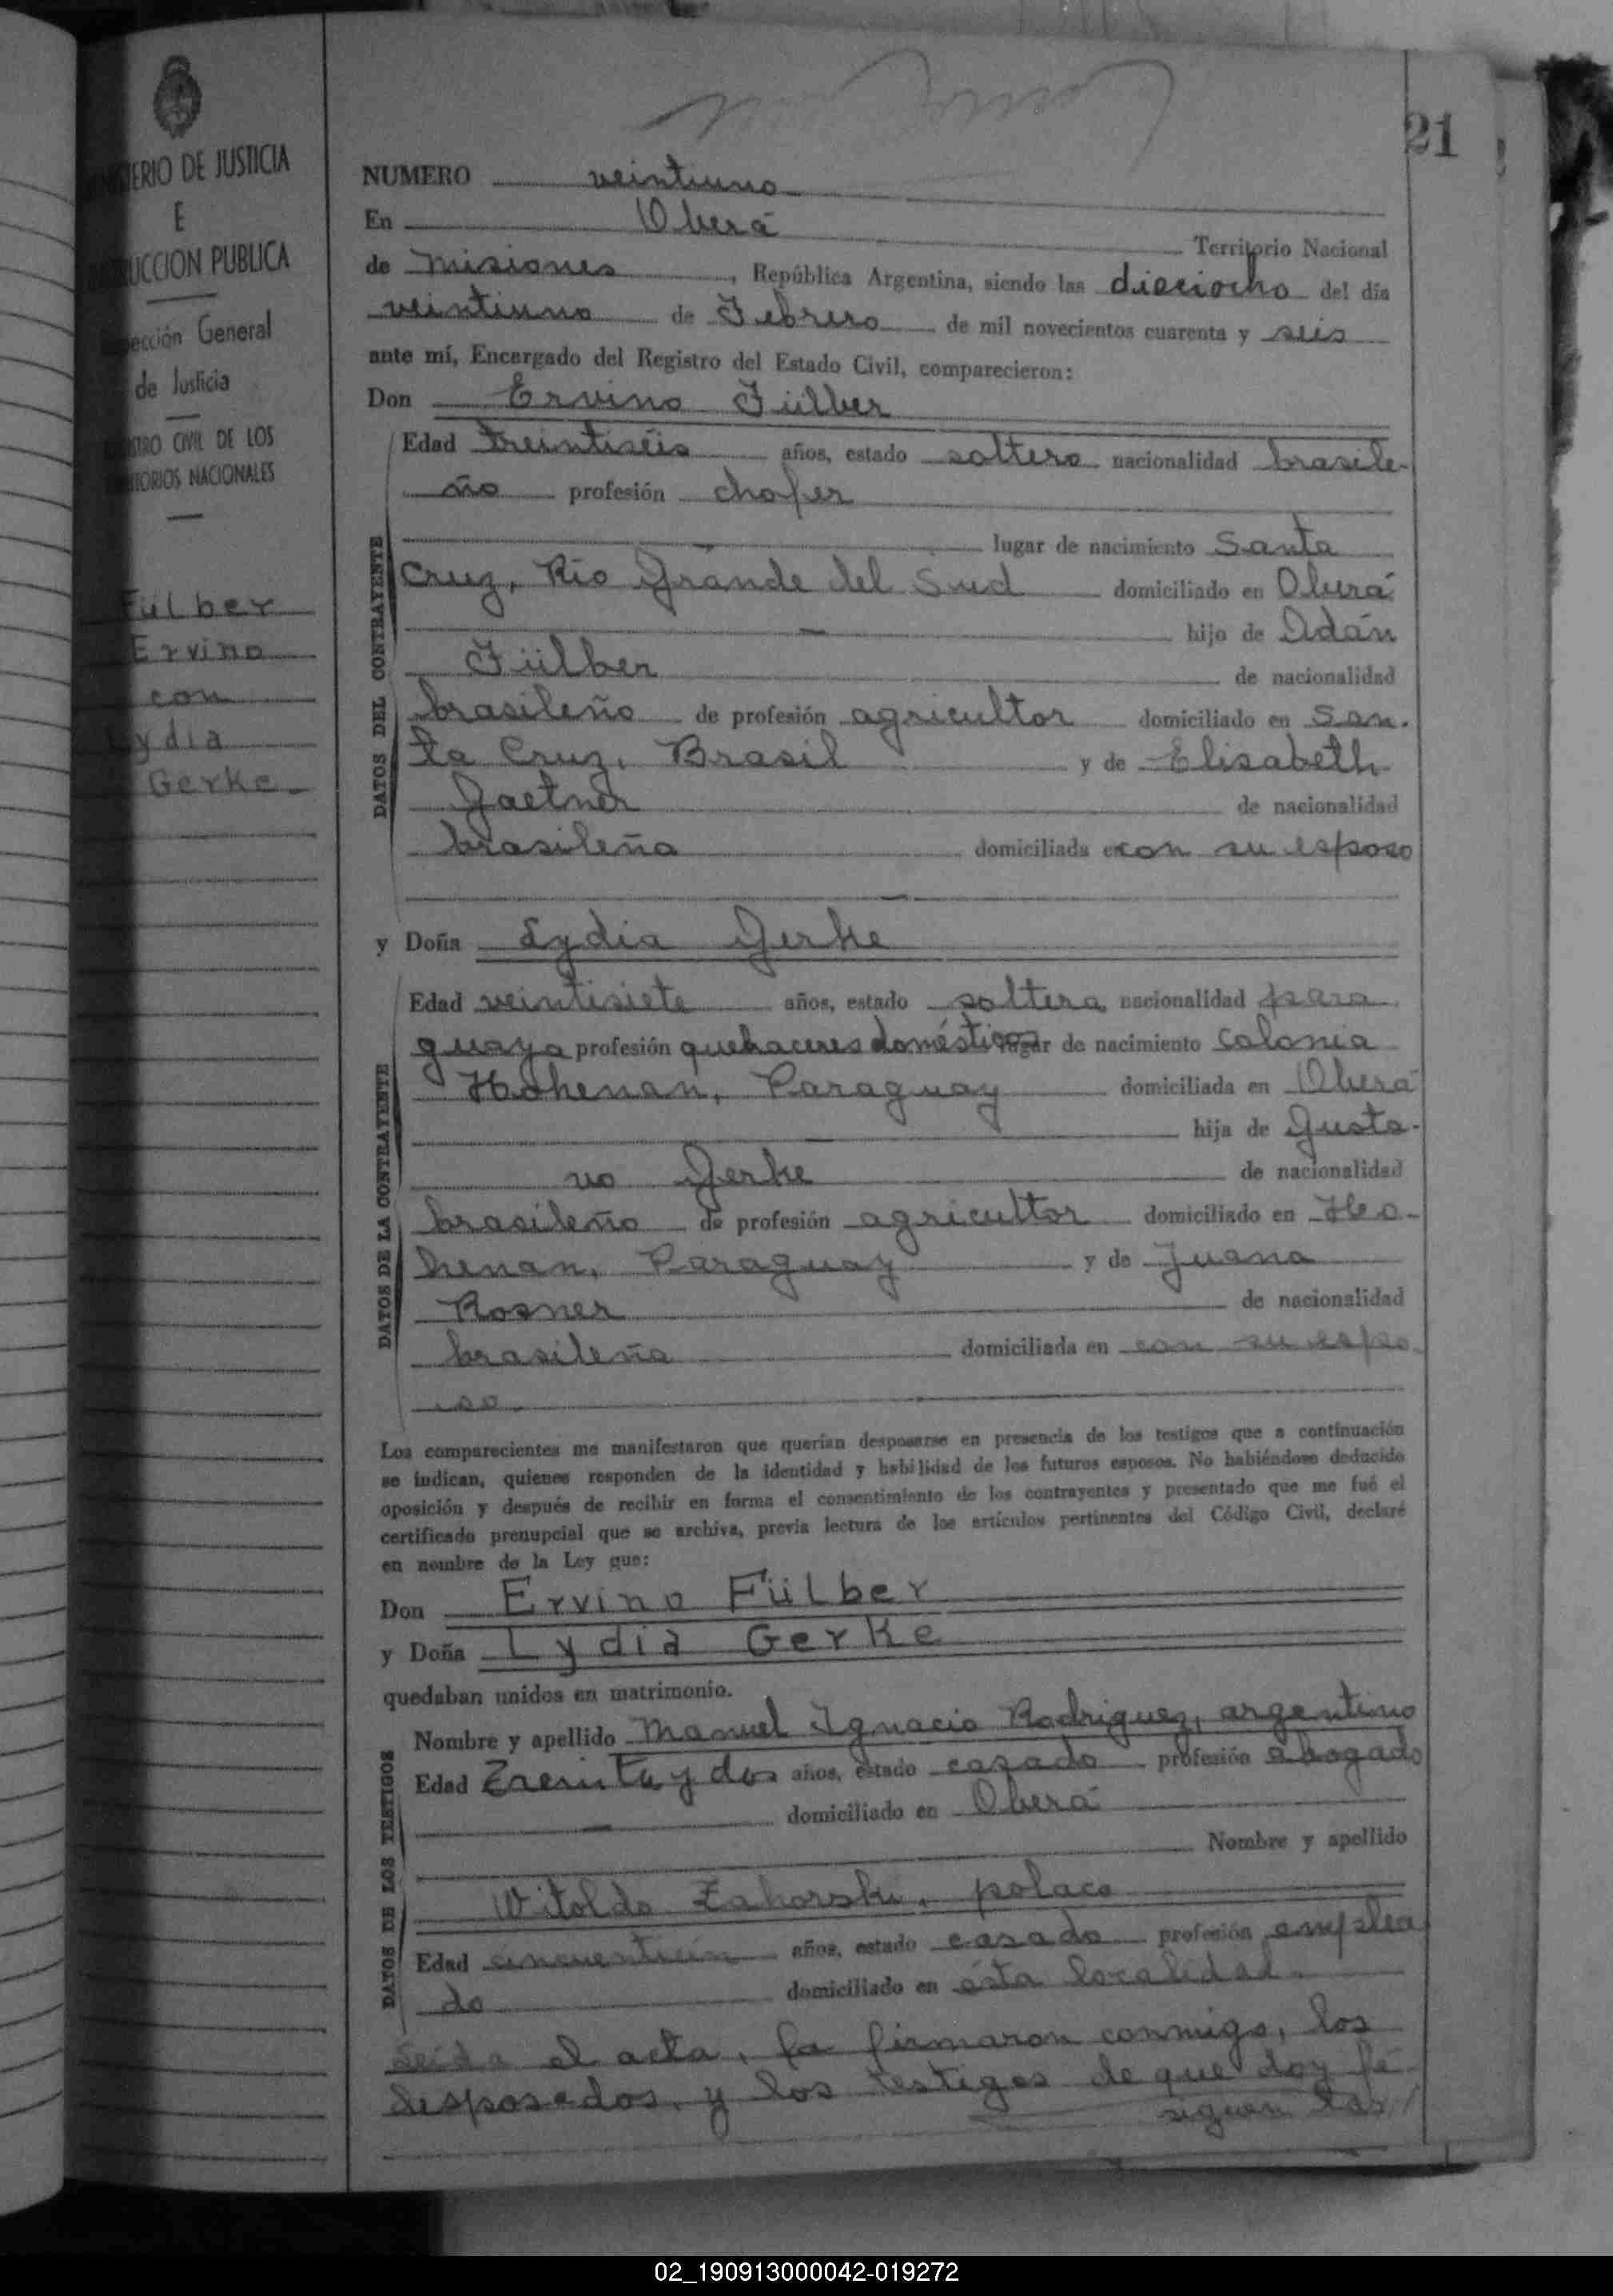 21
MINISTERIO DE JUSTICIA
E
INSTRUCCION PUBLICA
Inspección General
de Justicia
REGISTRO CIVIL DE LOS
TERRITORIOS NACIONALES
Fülber
Ervino
con
Lydia
Gerke
NUMERO veintiuno
En Oberá Territorio Nacional
de Misiones, República Argentina, siendo las dieciocho del día
veintiuno de Febrero de mil novecientos cuarenta y seis
ante mí, Encargado del Registro del Estado Civil, comparecieron:
Don Ervino Fülber
DATOS DEL CONTRAYENTE
Edad treintiséis años, estado soltero nacionalidad brasile-
ño profesión chofer
lugar de nacimiento Santa
Cruz, Río Grande del Sud domiciliado en Oberá
hijo de Adán
Fülber de nacionalidad
brasileño de profesión agricultor domiciliado en San-
ta Cruz, Brasil y de Elisabeth
Gaetner de nacionalidad
brasileña domiciliada en con su esposo
y Doña Lydia Gerke
DATOS DE LA CONTRAYENTE
Edad veintisiete años, estado soltera nacionalidad para
guaya profesión quehaceres domésticos lugar de nacimiento Colonia
Hohenan, Paraguay domiciliada en Oberá
hija de Gusta-
vo Gerke de nacionalidad
brasileño de profesión agricultor domiciliado en Ho-
henan, Paraguay y de Juana
Rosner de nacionalidad
brasileña domiciliada en con su espo-
so.
Los comparecientes me manifestaron que querían desposarse en presencia de los testigos que a continuación
se indican, quienes responden de la identidad y habilidad de los futuros esposos. No habiéndose deducido
oposición y después de recibir en forma el consentimiento de los contrayentes y presentado que me fué el
certificado prenupcial que se archiva, previa lectura de los artículos pertinentes del Código Civil, declaré
en nombre de la Ley que:
Don Ervino Fülber
y Doña Lydia Gerke
quedaban unidos en matrimonio.
DATOS DE LOS TESTIGOS
Nombre y apellido Manuel Ignacio Rodriguez, argentino
Edad Treinta y dos años, estado casado profesión abogado
domiciliado en Oberá
Nombre y apellido
Witoldo Zahorski, polaco
Edad cincuentiún años, estado casado profesión emplea
do domiciliado en ésta localidad.
Leída el acta, la firmaron conmigo, los
desposados, y los testigos de que doy fé
siguen las/
02_190913000042-019272